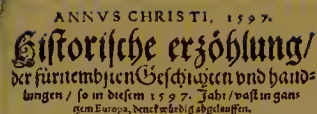 ANNVS CHRISTI, 1597.
Historische erzöhlung/
der fürnembsten Geschichten vnd hand-
lungen / so in diesem 1597. Jahr / vast in gan-
tzem Europa, denckwürdig abgelauffen.